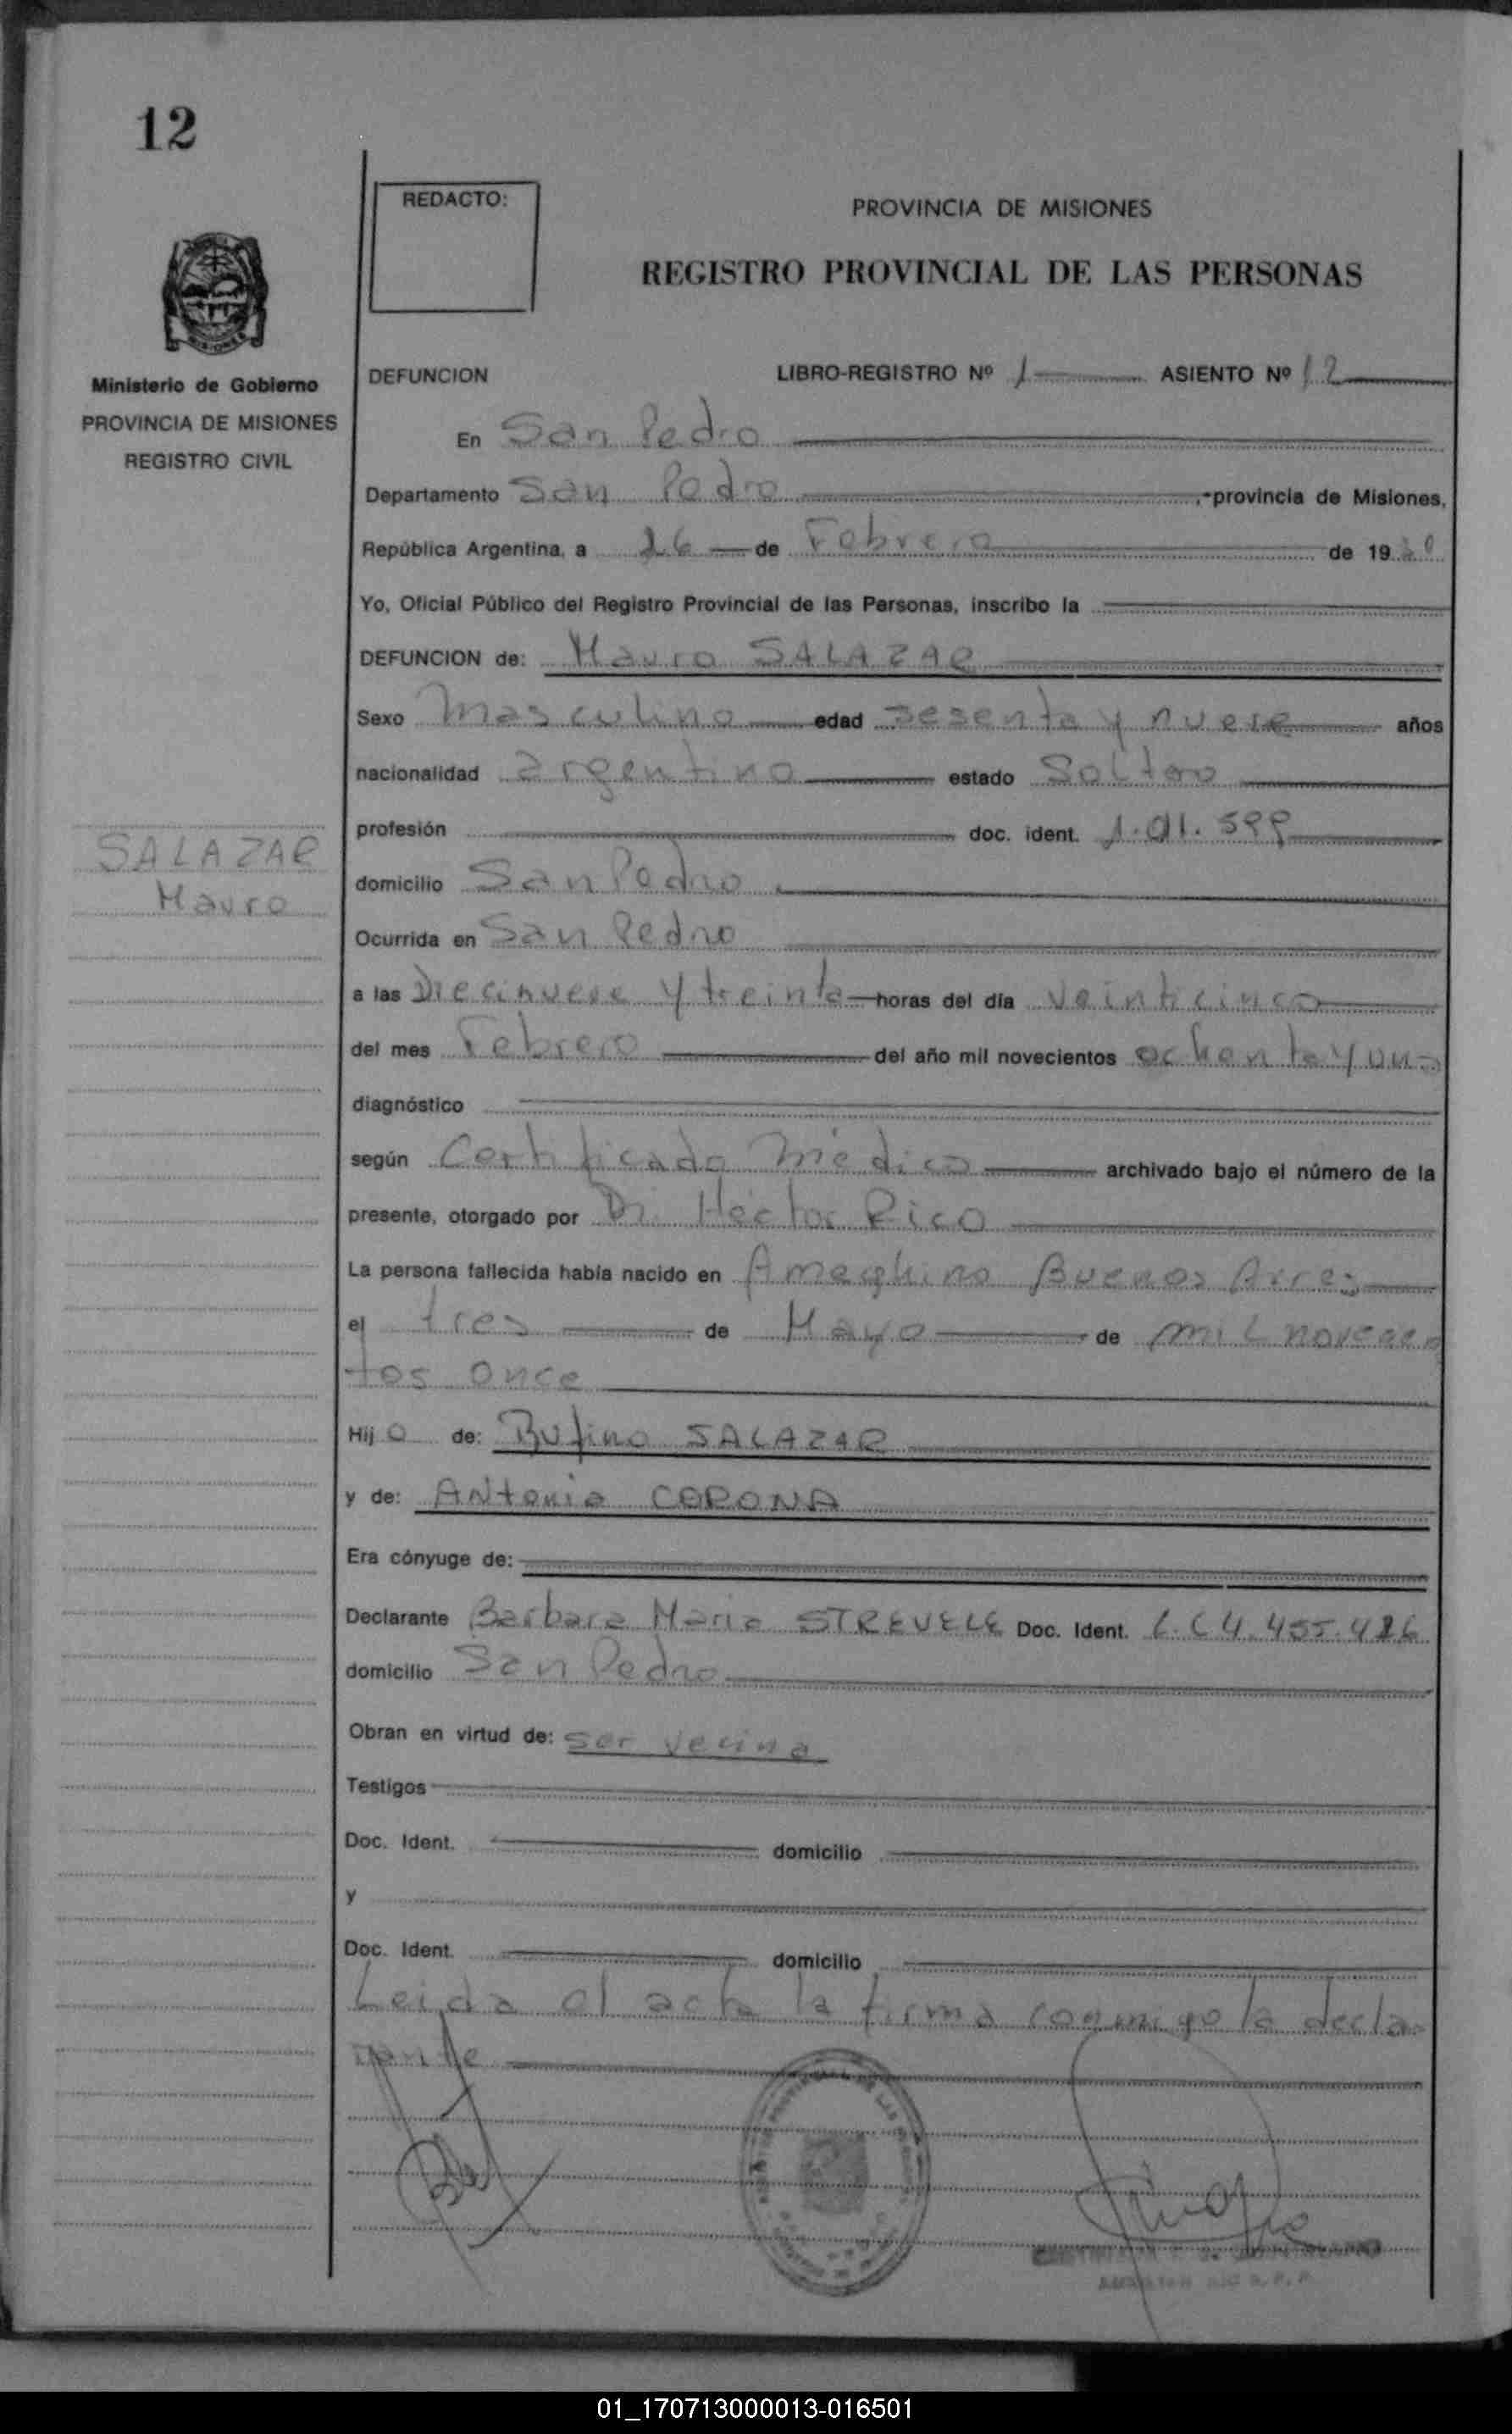 12
REDACTO:
PROVINCIA DE MISIONES
REGISTRO PROVINCIAL DE LAS PERSONAS
Ministerio de Gobierno
PROVINCIA DE MISIONES
REGISTRO CIVIL
DEFUNCION LIBRO-REGISTRO Nº 1 ASIENTO Nº 12
En San Pedro
Departamento San Pedro, provincia de Misiones,
República Argentina, a 26 de Febrero de 19
Yo, Oficial Público del Registro Provincial de las Personas, inscribo la
DEFUNCION de: Mauro SALAZAR
Sexo masculino edad sesenta y nueve años
nacionalidad argentino estado Soltero
profesión doc. ident.
SALAZAR
Mauro
domicilio San Pedro
Ocurrida en San Pedro
a las Diecinueve y treinta horas del día veinticinco
del mes Febrero del año mil novecientos ochenta y uno
diagnóstico
según Certificado médico archivado bajo el número de la
presente, otorgado por Dr. Héctor Rico
La persona fallecida había nacido en Ameghino Buenos Aires
el tres de Mayo de mil novecien
tos once
Hijo de: Rufino SALAZAR
y de: Antonia CORONA
Era cónyuge de:
Declarante Barbara Maria STREVELE Doc. Ident. L.C 4.455.426
domicilio San Pedro
Obran en virtud de: ser vecina
Testigos
Doc. Ident. domicilio
y
Doc. Ident. domicilio
Leida el acta la firma conmigo la decla
rante
01_170713000013-016501